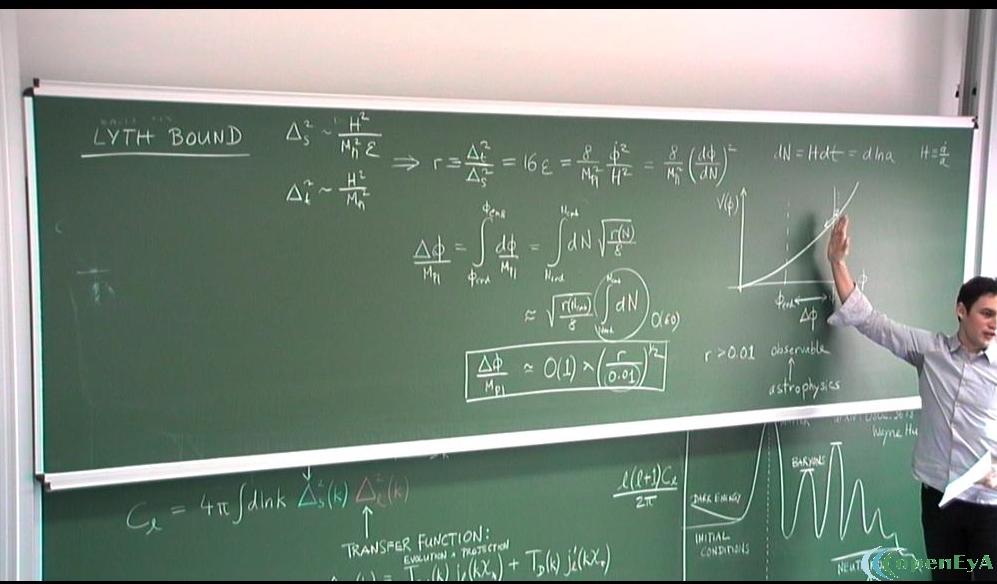 LYTH BOUND
Δ_s² ~ H²/(M_Pl² ε)
Δ_t² ~ H²/M_Pl²
⇒ r ≡ Δ_t²/Δ_s² = 16ε = 8/M_Pl² φ̇²/H² = 8/M_Pl² (dφ/dN)²
dN = Hdt = dlna
H ≡ ȧ/a
Δφ/M_Pl = ∫ dφ/M_Pl = ∫ dN √(r(N)/8)
≈ √(r(N_cmb)/8) ∫ dN O(60)
Δφ/M_Pl ≃ O(1) × (r/0.01)^1/2
V(φ)
φ
φ_end
Δφ
r > 0.01 observable
↑
astrophysics
C_ℓ = 4π ∫ dlnk Δ_s²(k) Δ_ℓ²(k)
↑
TRANSFER FUNCTION:
EVOLUTION + PROJECTION
j_ℓ(kχ_*) + T_D(k) j_ℓ'(kχ_*)
ℓ(ℓ+1)C_ℓ/2π
DARK ENERGY
INITIAL
CONDITIONS
BARYONS
Wayne Hu
openEyA